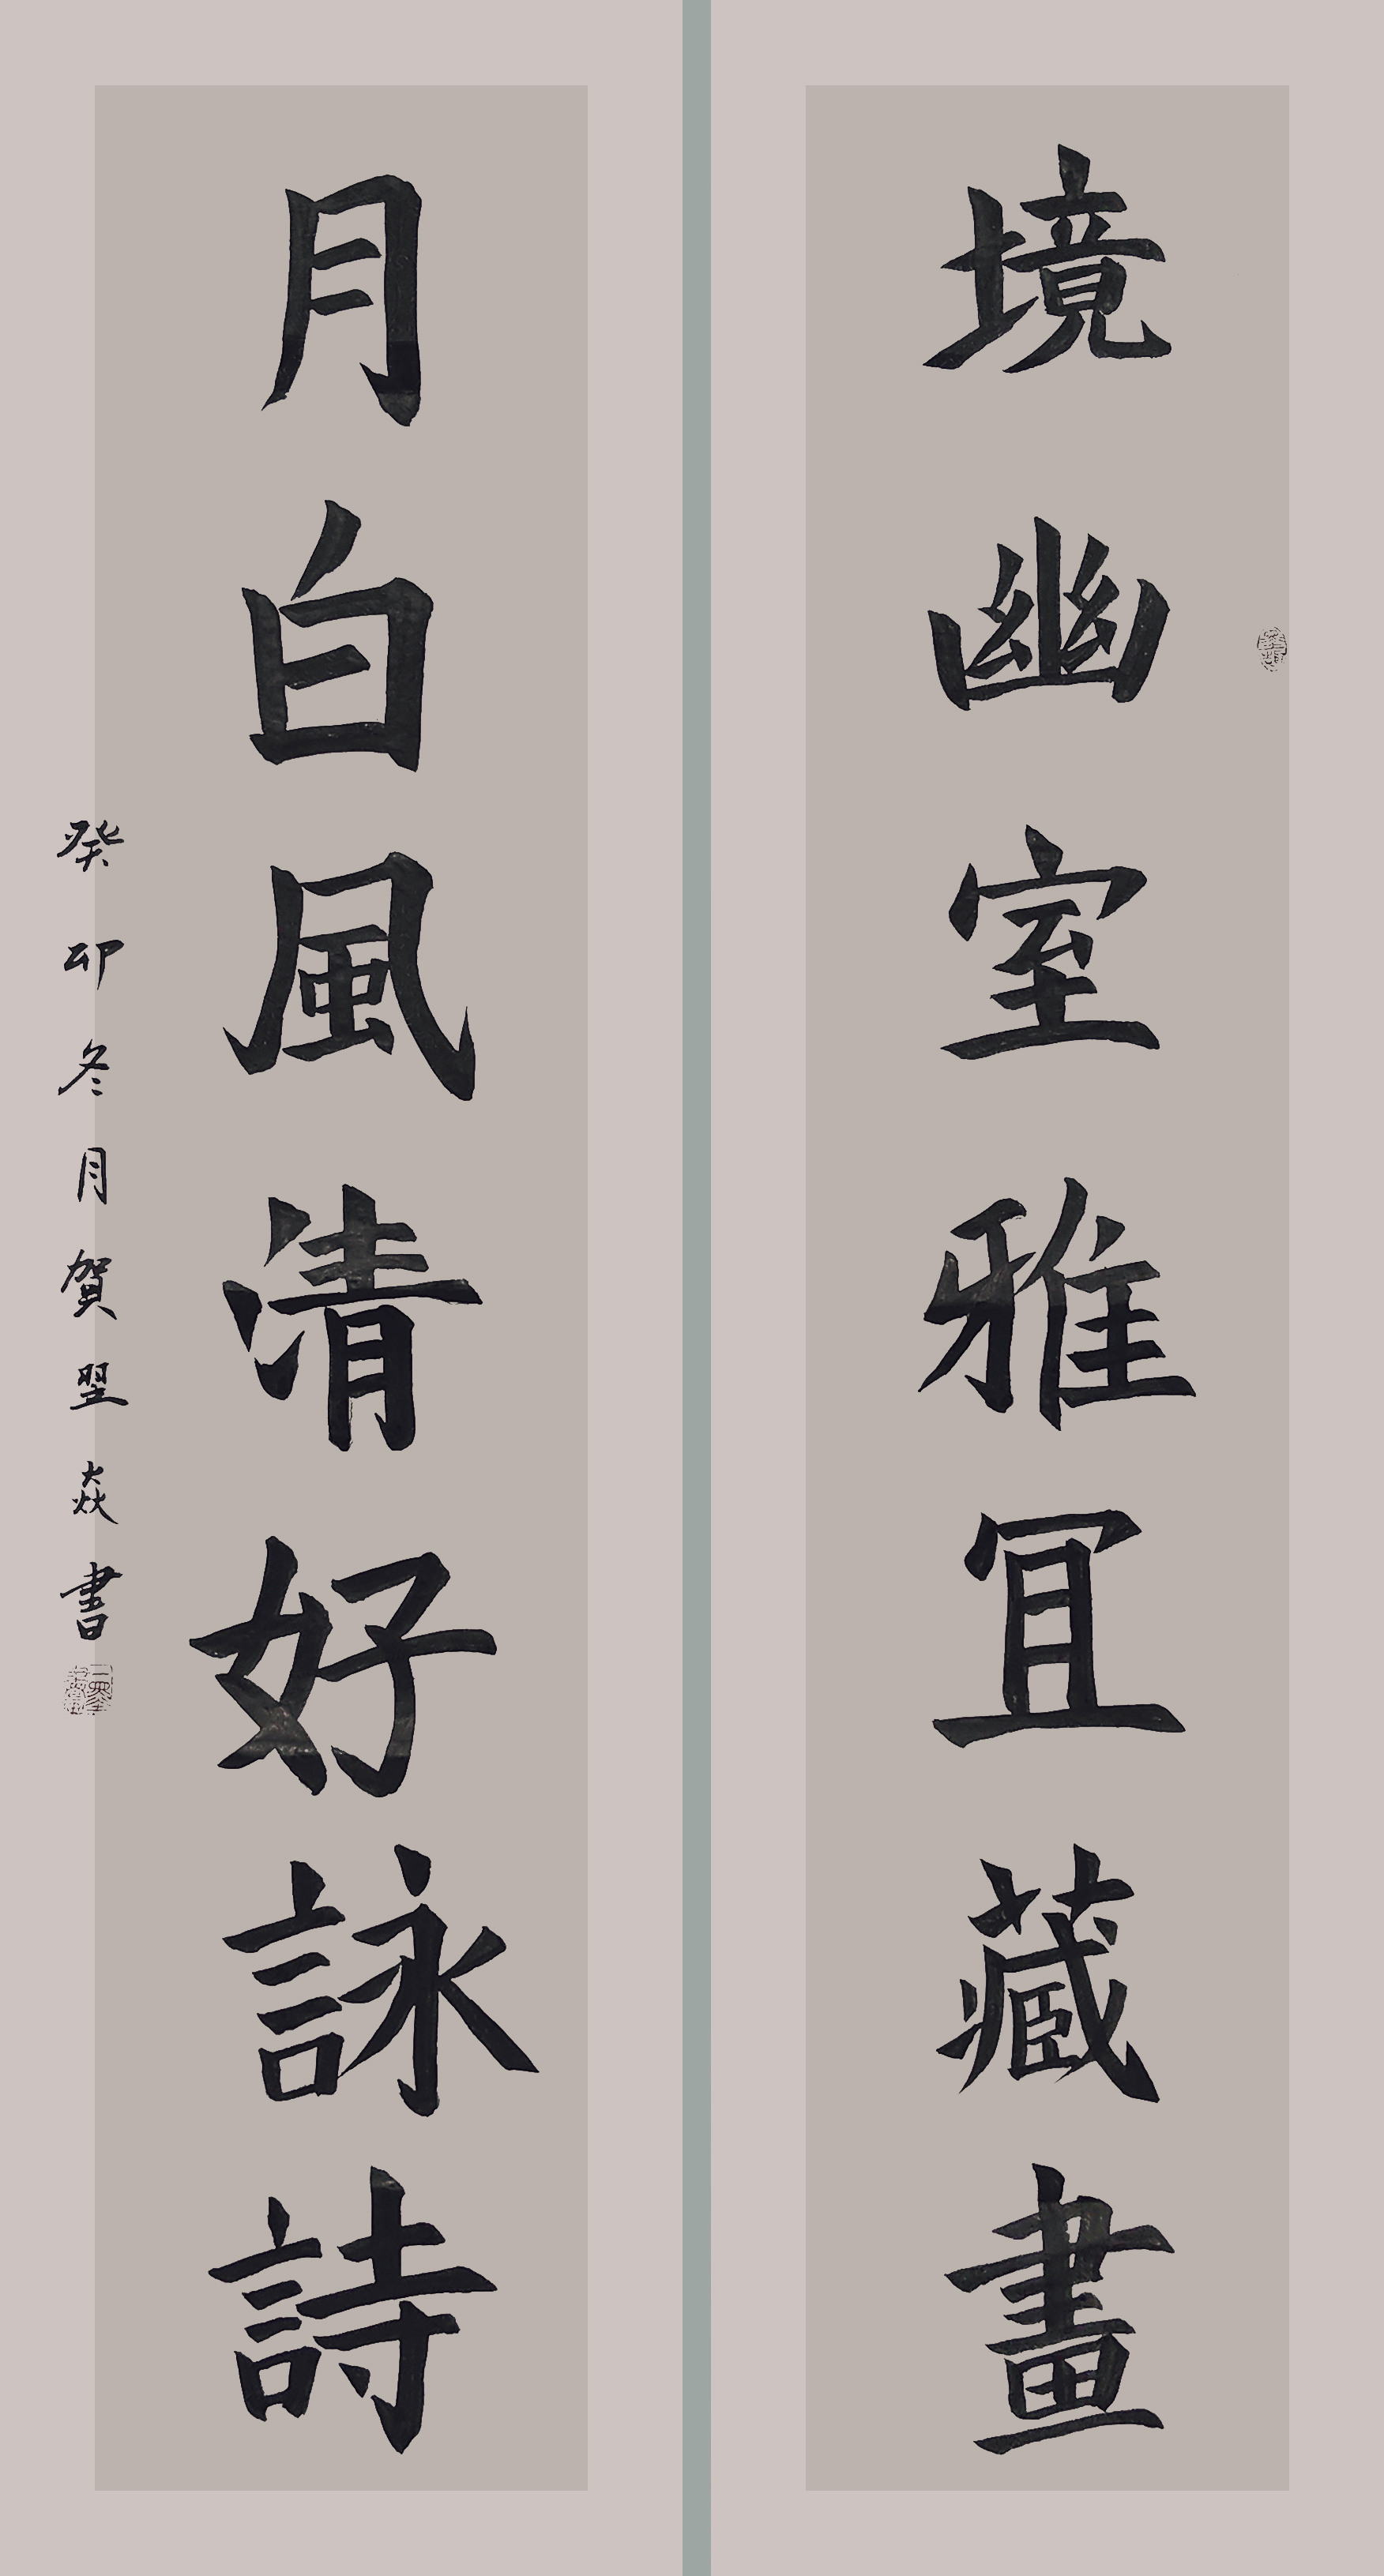 境幽室雅冝藏畫
月白風清好詠詩
癸卯冬月賀曌焱書